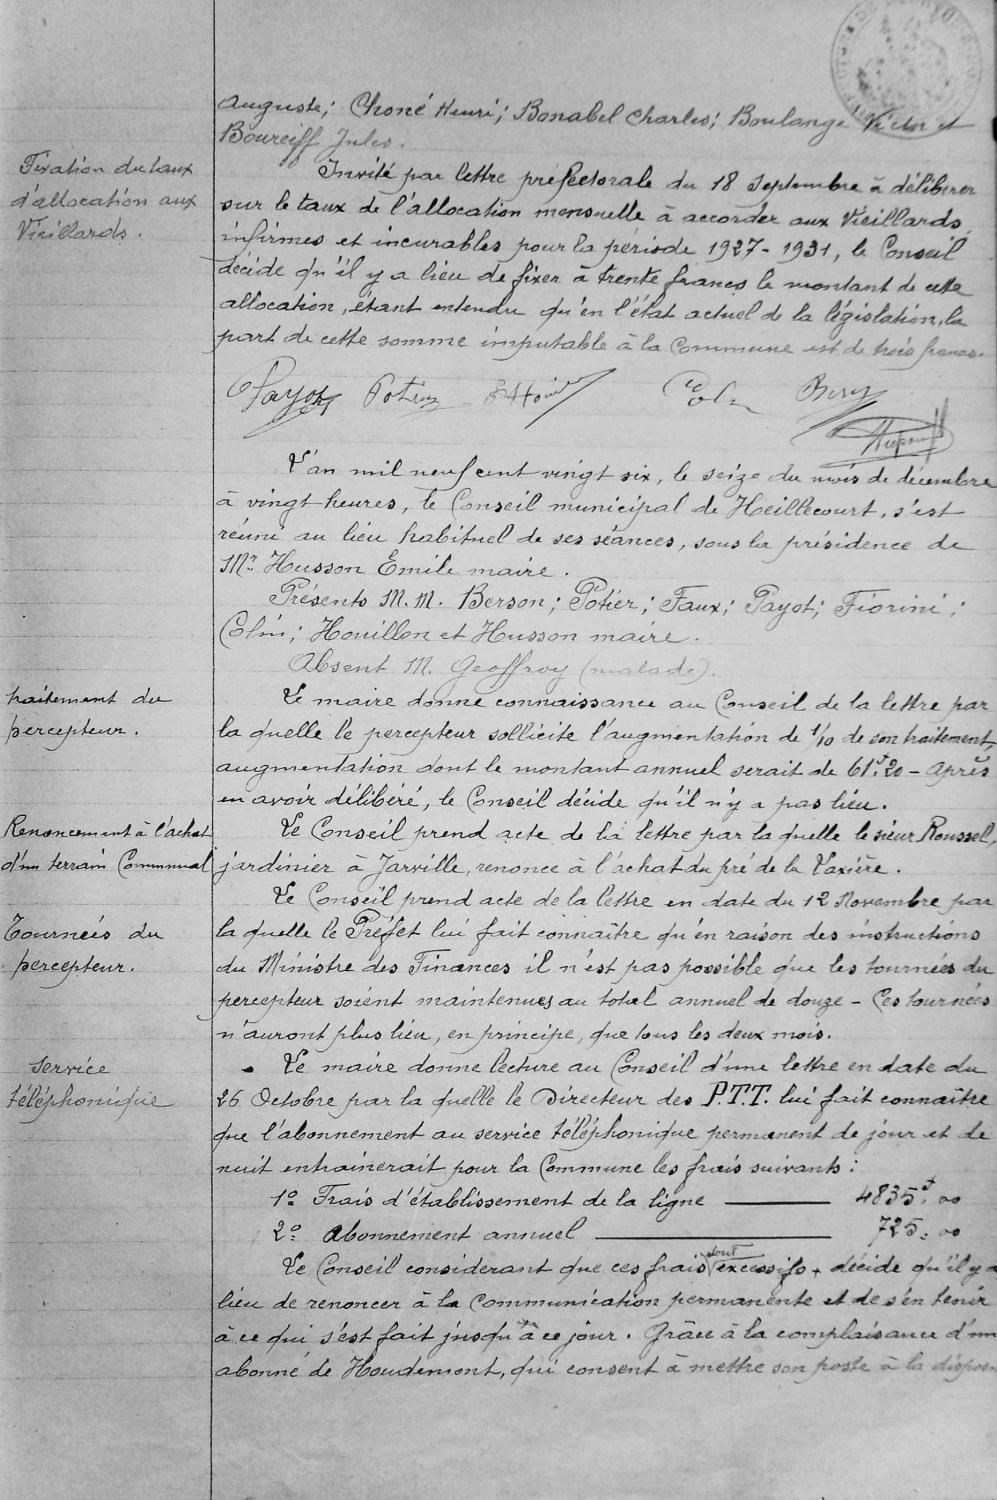 Auguste; Choné Henri; Bonabel Charles; Boulangé Victor et
Bourciff Jules.
Fixation du taux
d'allocation aux
Vieillards.
Invité par lettre préfectorale du 18 Septembre à délibérer
sur le taux de l'allocation mensuelle à accorder aux Vieillards,
infirmes et incurables pour la période 1927-1931, le Conseil
décide qu'il y a lieu de fixer à trente francs le montant de cette
allocation, étant entendu qu'en l'état actuel de la législation, la
part de cette somme imputable à la Commune est de trois francs.
Payot Potier Colin
L'an mil neuf cent vingt six, le seize du mois de décembre
à vingt heures, le Conseil municipal de Heillecourt, s'est
réuni au lieu habituel de ses séances, sous la présidence de
Mr. Husson Emile maire.
Présents M.M. Berson; Potier; Faux; Payot; Fiorini;
Colin; Houillon et Husson maire.
Absent M. Geoffroy (malade).
traitement du
percepteur.
Le maire donne connaissance au Conseil de la lettre par
la quelle le percepteur sollicite l'augmentation de 1/10 de son traitement,
augmentation dont le montant annuel serait de 61f.20 - Après
en avoir délibéré, le Conseil décide qu'il n'y a pas lieu.
Renoncement à l'achat
d'un terrain Communal
Le Conseil prend acte de la lettre par la quelle le sieur Roussel,
jardinier à Jarville, renonce à l'achat du pré de la Taxière.
Tournées du
percepteur.
Le Conseil prend acte de la lettre en date du 12 Novembre par
la quelle le Préfet lui fait connaître qu'en raison des instructions
du Ministre des Finances il n'est pas possible que les tournées du
percepteur soient maintenues au total annuel de douze - Ces tournées
n'auront plus lieu, en principe, que tous les deux mois.
Service
téléphonique
Le maire donne lecture au Conseil d'une lettre en date du
26 Octobre par la quelle le Directeur des P.T.T. lui fait connaître
que l'abonnement au service téléphonique permanent de jour et de
nuit entrainerait pour la Commune les frais suivants:
1º Frais d'établissement de la ligne 4835f.00
2º Abonnement annuel 725.00
Le Conseil considerant que ces frais sont excessifs, décide qu'il y a
lieu de renoncer à la communication permanente et de s'en tenir
à ce qui s'est fait jusqu'à ce jour. Grâce à la complaisance d'un
abonné de Houdemont, qui consent à mettre son poste à la dispos